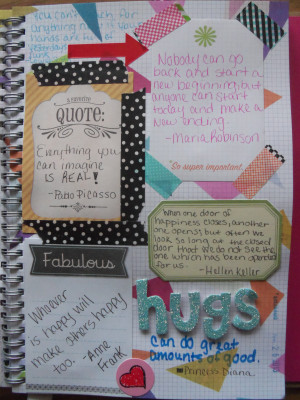 You can't reach for
anything new if your
hands are full of
yesterdays
junk
Nobody can go
back and start a
new beginning but
anyone can start
today and make a
new ending.
-Maria Robinson
*So super important.
a favorite
QUOTE:
Everything you
can imagine
is REAL!
-Pablo Picasso
When one door of
happiness closes, another
one opens, but often we
look so long at the closed
door that we do not see the
one which has been opened
for us.
-Hellen Keller
Fabulous
Whoever
is happy will
make others happy
too. -Anne
Frank
hugs
can do great
amounts of good.
-Princess Diana